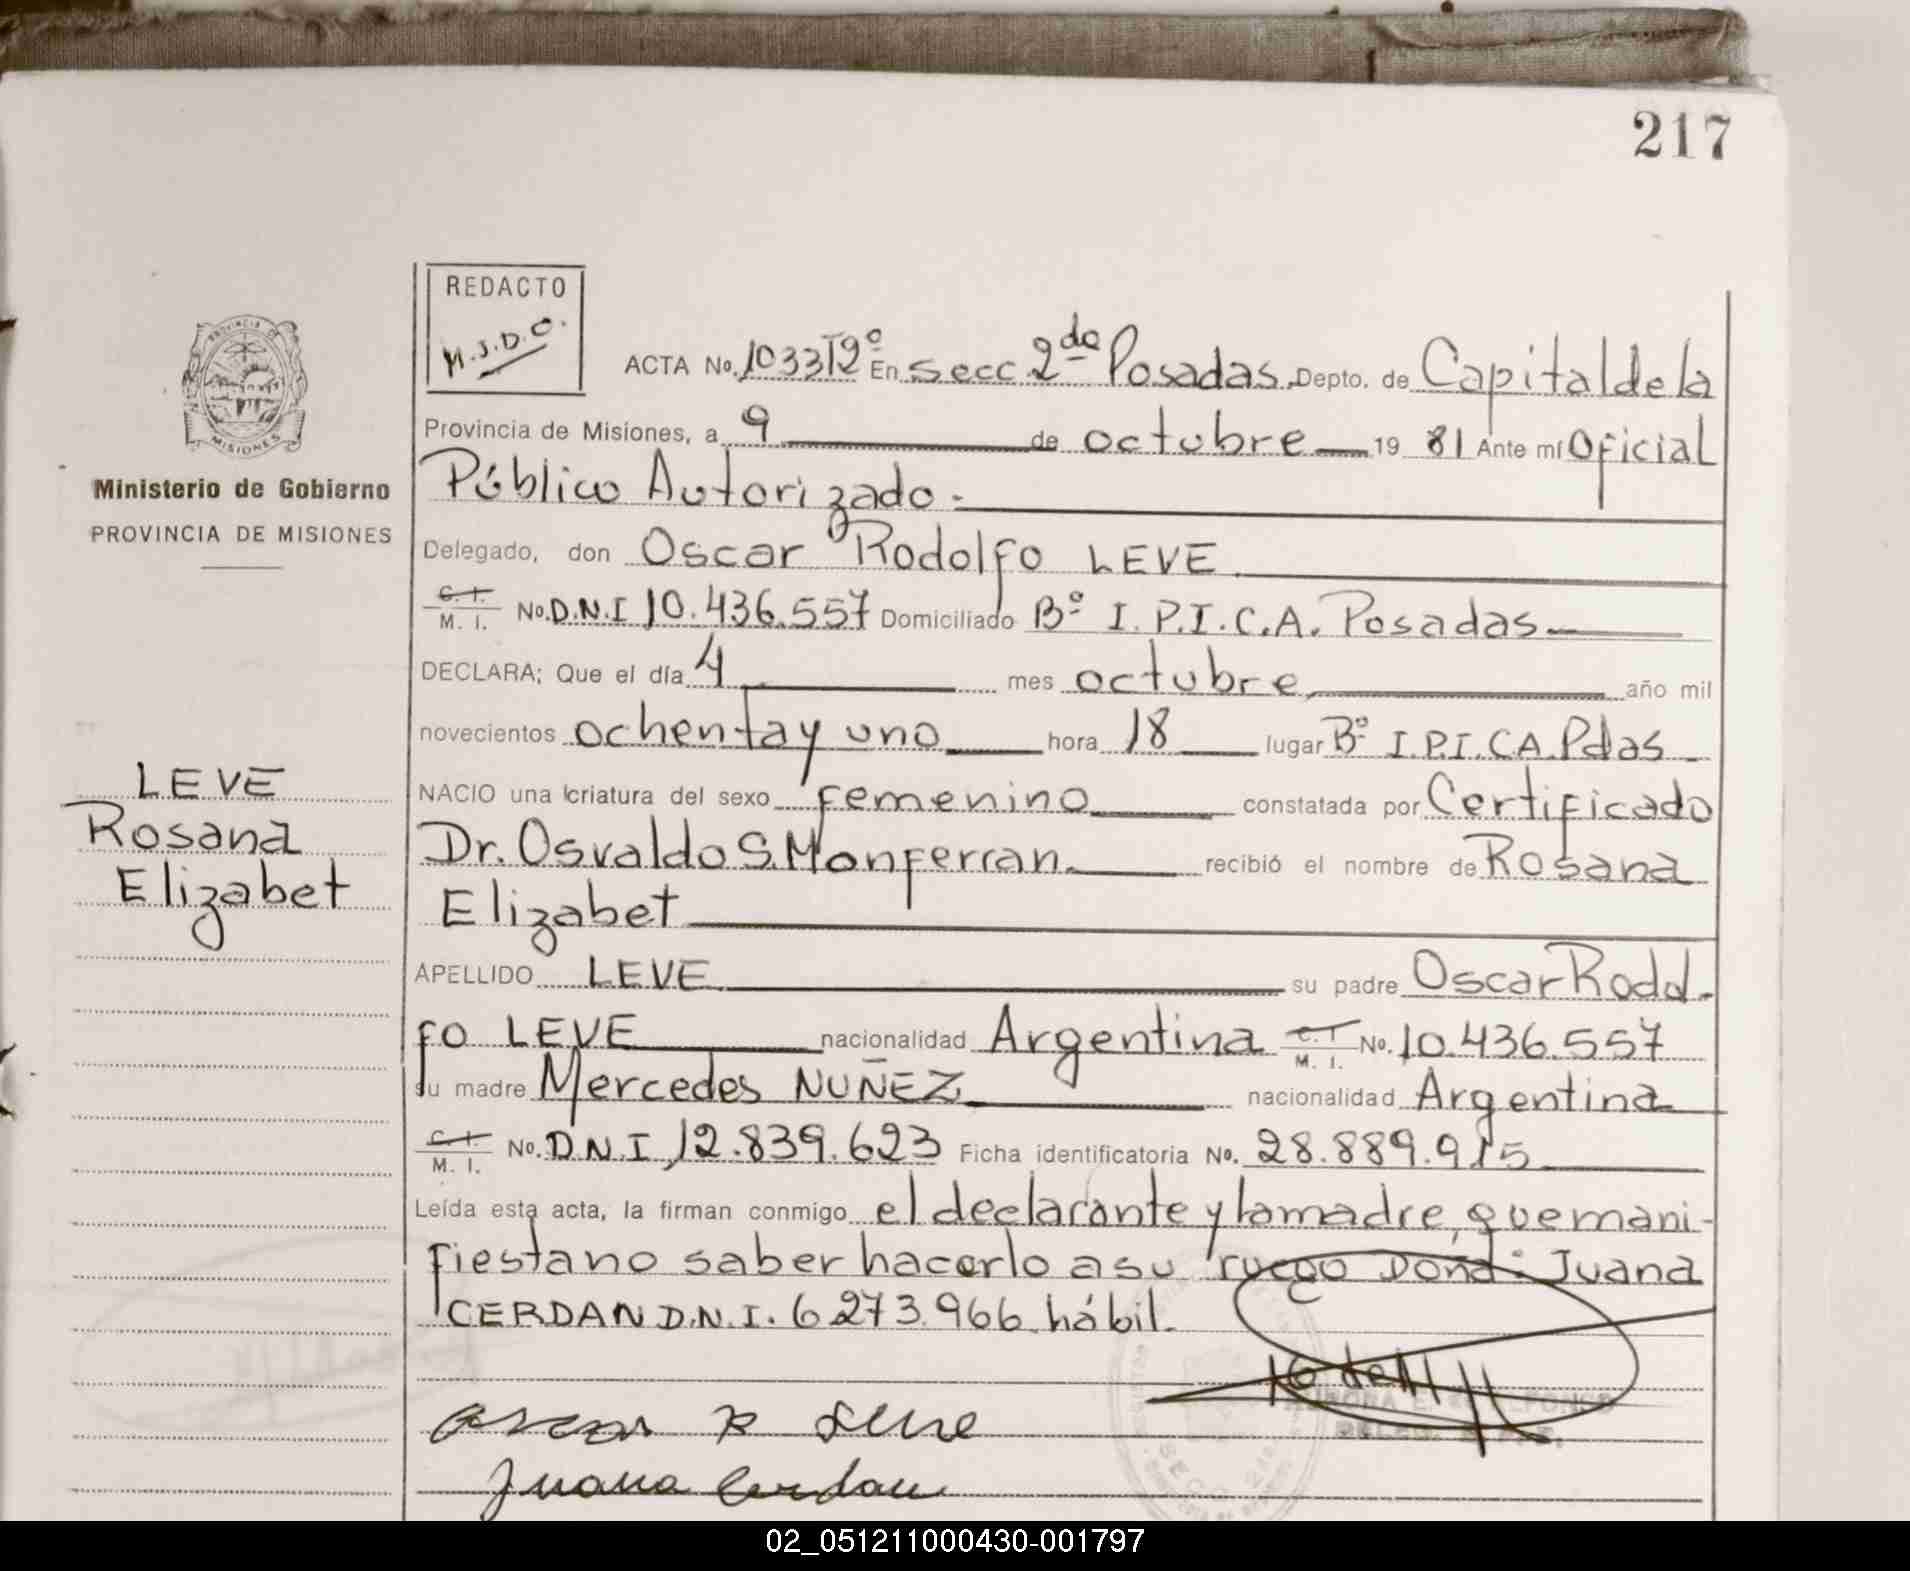 217
REDACTO
M.J.D.C.
ACTA No. 1033 T2º En secc. 2da Posadas. Depto. de Capital de la
Provincia de Misiones, a 9 de octubre 19 81 Ante mí Oficial
Público Autorizado.
Delegado, don Oscar Rodolfo LEVE
C. I. M. I. No. D.N.I 10.436.557 Domiciliado Bº I.P.I.C.A. Posadas
DECLARA; Que el día 4 mes octubre, año mil
novecientos ochenta y uno hora 18 lugar Bº I.P.I.C.A. Pdas
NACIO una criatura del sexo femenino constatada por Certificado
Dr. Osvaldo S. Monferran. recibió el nombre de Rosana
Elizabet
APELLIDO LEVE su padre Oscar Rodol-
fo LEVE nacionalidad Argentina C. I. M. I. No. 10.436.557
su madre Mercedes NUÑEZ nacionalidad Argentina
C. I. M. I. No. D.N.I 12.839.623 Ficha identificatoria No. 28.889.915
Leída esta acta, la firman conmigo el declarante y la madre, que mani-
fiesta no saber hacerlo a su ruego Doña: Juana
CERDAN D.N.I. 6 273.966 hábil.
Oscar R Leve
Juana Cerdan
PROVINCIA DE
MISIONES
Ministerio de Gobierno
PROVINCIA DE MISIONES
LEVE
Rosana
Elizabet
02_051211000430-001797